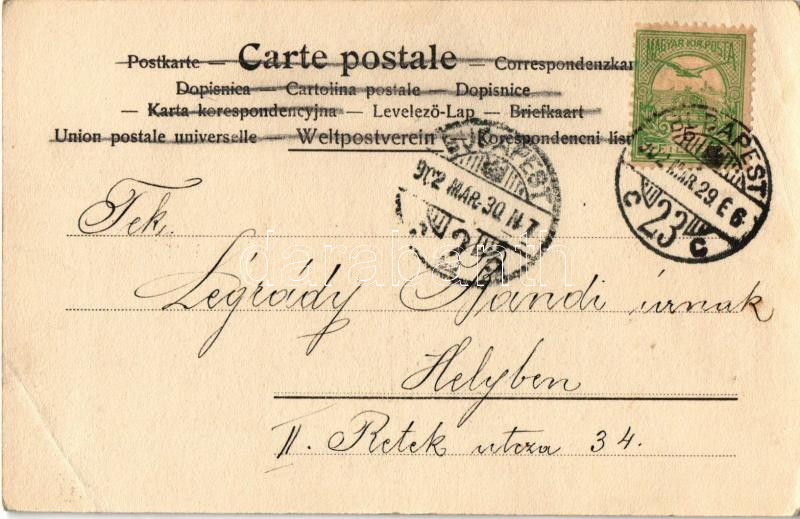 Postkarte — Carte postale — Correspondenzkar
Dopisnica — Cartolina postale — Dopisnice
— Karta korespondencyjna — Levelező-Lap — Briefkaart
Union postale universelle — Weltpostverein — Korespondencni list
MAGYAR KIR. POSTA
BUDAPEST
902 MAR. 29 E 6
C 23 C
BUDAPEST
902 MAR. 30 N 7
Tek.
Légrády Nándi úrnak
Helyben
II. Retek utcza 34.
darabanth